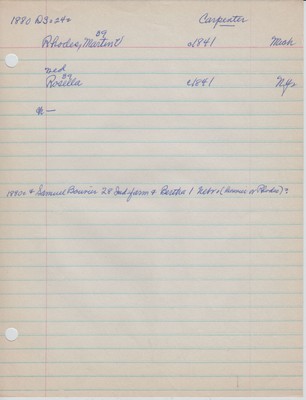 1880 D3 = 24 = Carpenter
39
Rhodes, Martin V c1841 Mich
wed
39
Rosella c1841 NYs
1880 = & Samuel 28 Ind farm & Bertha 1 Nebr = ( or Rhodes)?